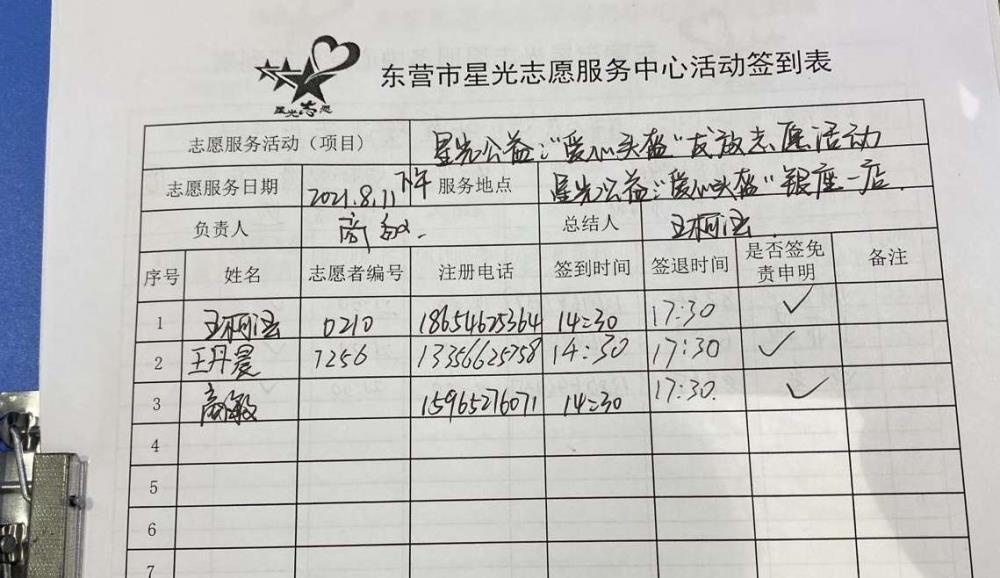 星光志愿
东营市星光志愿服务中心活动签到表
志愿服务活动（项目） 星光公益:“爱心头盔”发放志愿活动
志愿服务日期 2021.8.11下午 服务地点 星光公益:“爱心头盔”银座一店.
负责人 总结人 王柯
序号 姓名 志愿者编号 注册电话 签到时间 签退时间 是否签免责申明 备注
1 王柯 0210 18654625364 14:30 17:30 ✓
2 王丹晨 7256 13356625758 14:30 17:30 ✓
3 15965276071 14:30 17:30. ✓
4
5
6
7